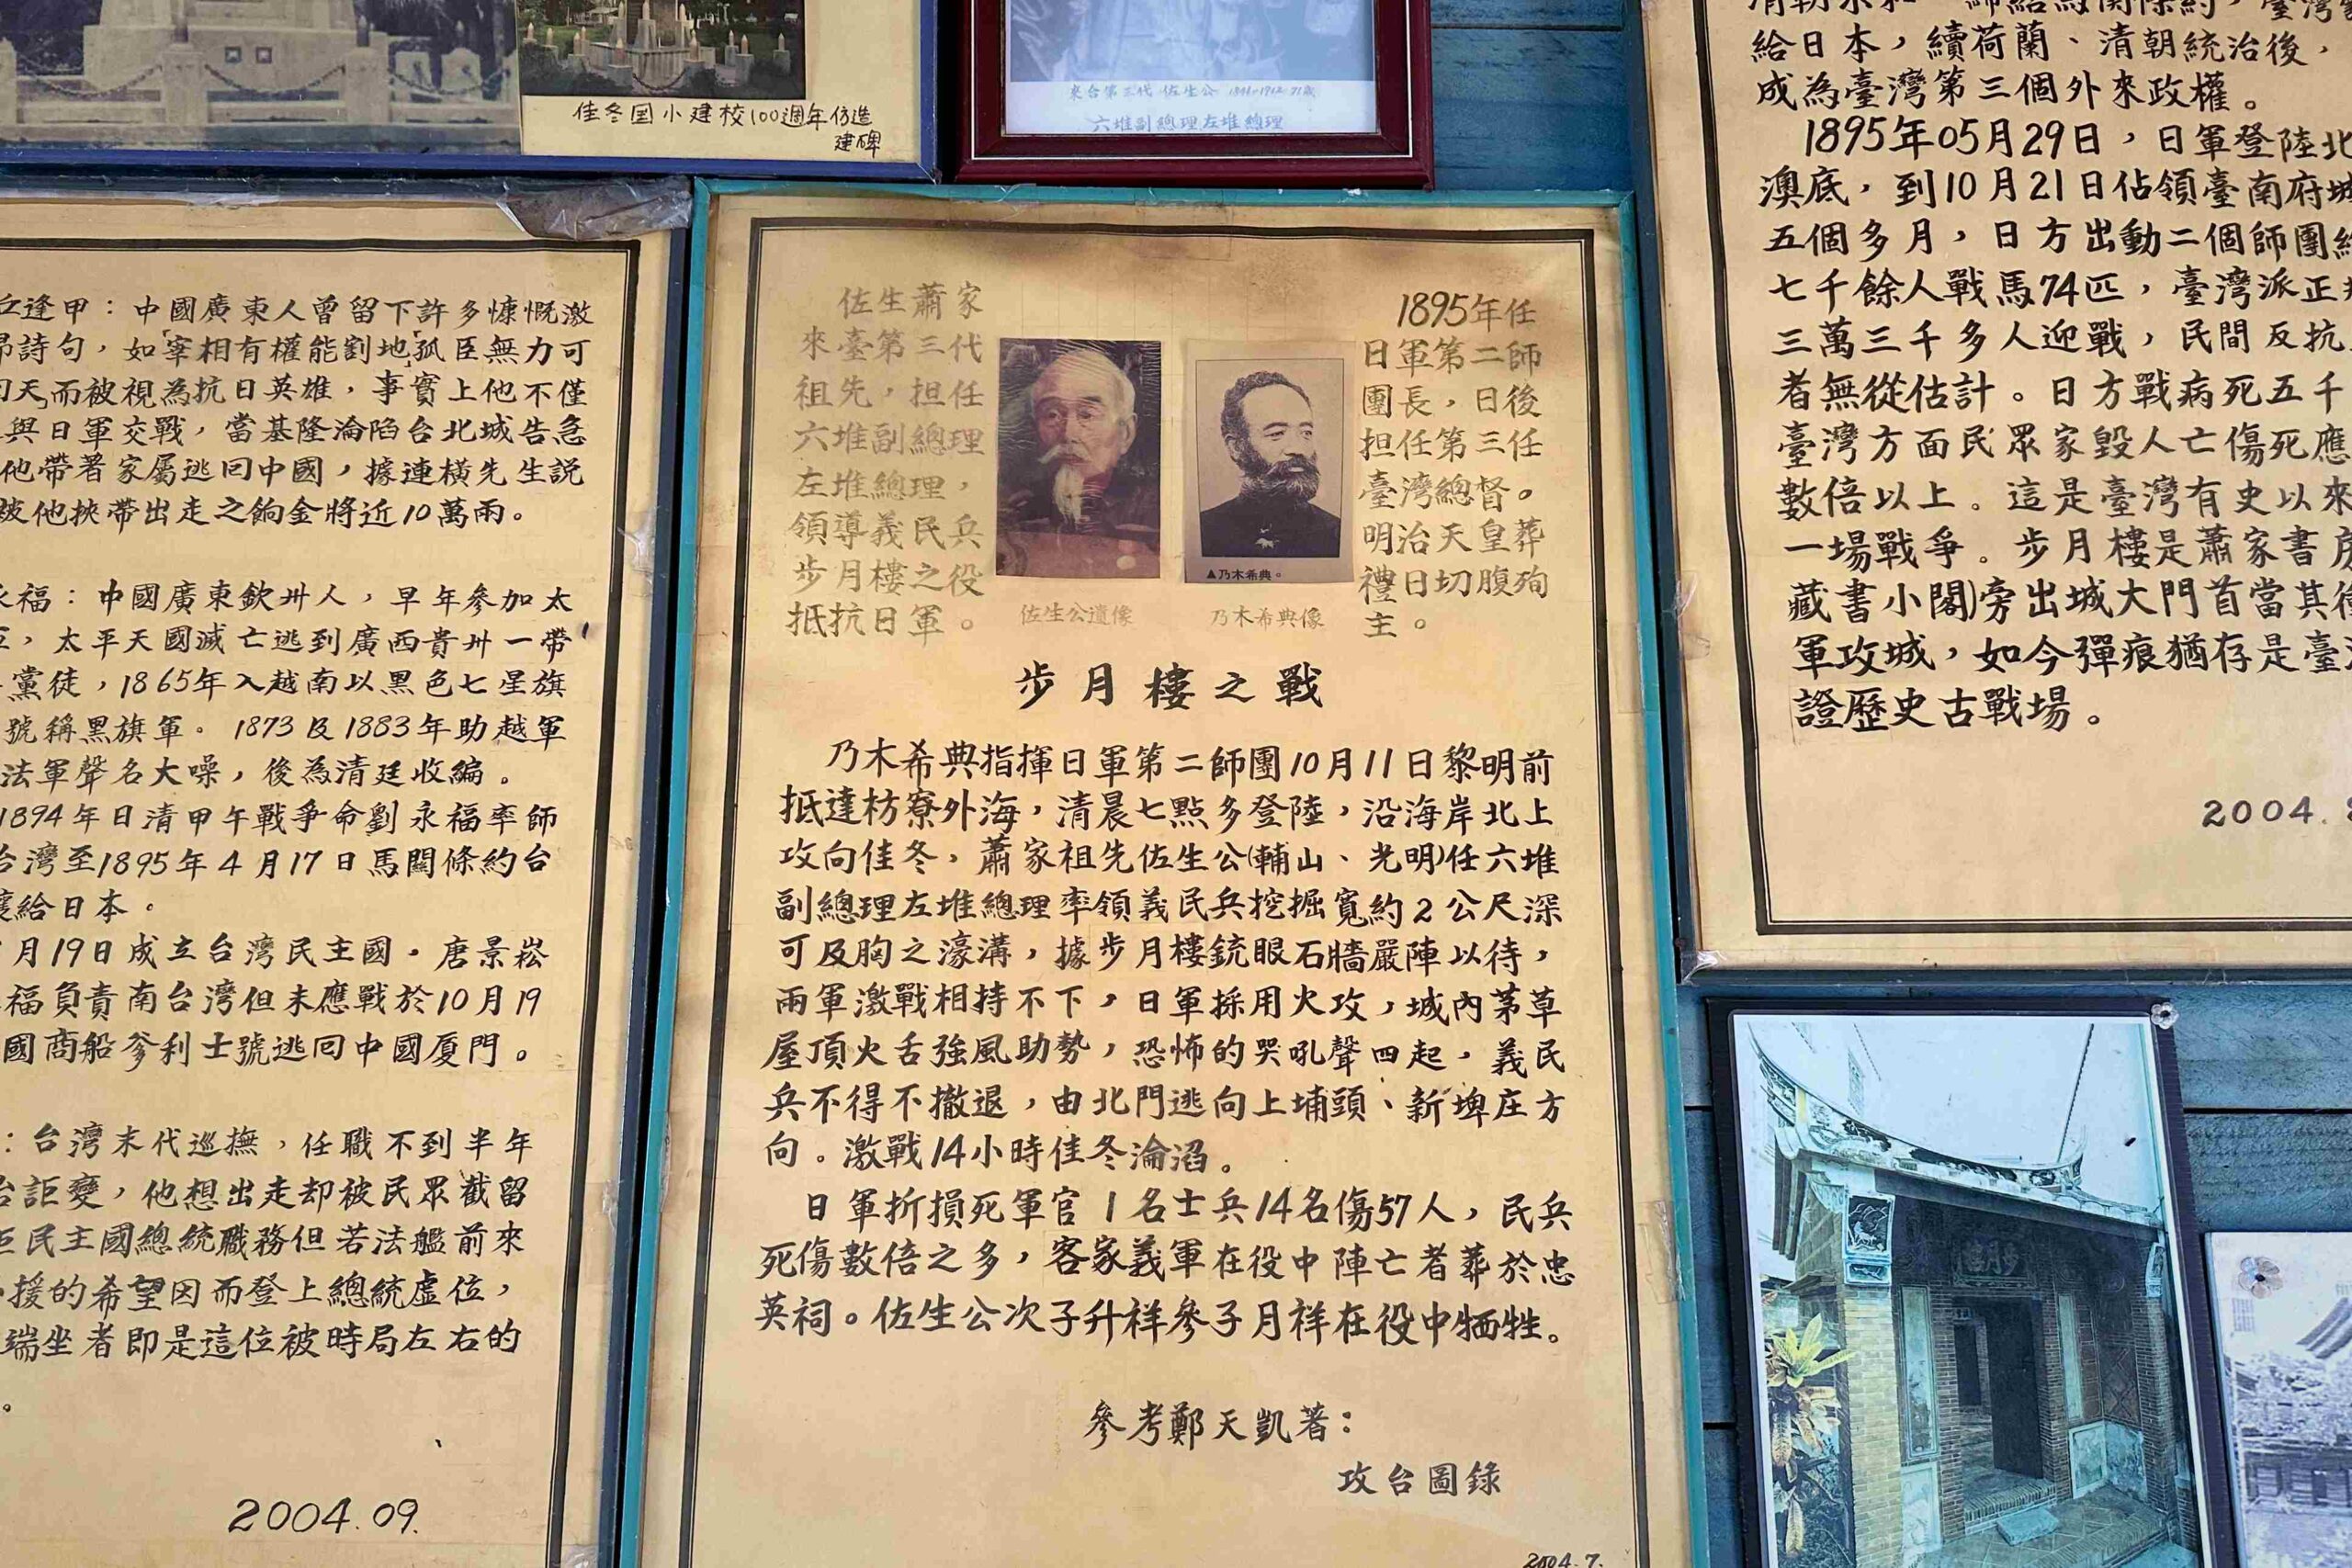 佳冬国小建校100週年仿造
建碑
來台第三代 佐生公 1841-1912 71歲
六堆副總理左堆總理
丘逢甲：中國廣東人曾留下許多慷慨激
昂詩句，如宰相有權能割地孤臣無力可
回天,而被視為抗日英雄，事實上他不僅
與日軍交戰，當基隆淪陷台北城告急
他帶著家屬逃回中國，據連橫先生説
被他挾帶出走之餉金將近10萬兩。
永福：中國廣東欽州人，早年參加太
，太平天國滅亡逃到廣西貴州一帶
黨徒，1865年入越南以黑色七星旗
號稱黑旗軍。1873及1883年助越軍
法軍聲名大噪，後為清廷收編。
1894年日清甲午戰爭命劉永福率師
台灣至1895年4月17日馬關條約台
讓給日本。
月19日成立台灣民主國。唐景崧
福負責南台灣但未應戰於10月19
國商船爹利士號逃回中國厦門。
：台灣末代巡撫，任職不到半年
台詎變，他想出走却被民眾截留
民主國總統職務但若法艦前來
援的希望因而登上總統虛位，
端坐者即是這位被時局左右的
。
2004.09.
佐生蕭家
來臺第三代
祖先，担任
六堆副總理
左堆總理，
領導義民兵
步月樓之役
抵抗日軍。
佐生公遺像
▲乃木希典。
乃木希典像
1895年任
日軍第二師
團長，日後
担任第三任
臺灣總督。
明治天皇葬
禮日切腹殉
主。
步月樓之戰
乃木希典指揮日軍第二師團10月11日黎明前
抵達枋寮外海，清晨七點多登陸，沿海岸北上
攻向佳冬，蕭家祖先佐生公(輔山、光明)任六堆
副總理左堆總理率領義民兵挖掘寬約2公尺深
可及胸之濠溝，據步月樓銃眼石牆嚴陣以待，
兩軍激戰相持不下，日軍採用火攻，城內茅草
屋頂火舌強風助勢，恐怖的哭吼聲四起，義民
兵不得不撤退，由北門逃向上埔頭、新埤庄方
向。激戰14小時佳冬淪滔。
日軍折損死軍官1名士兵14名傷57人，民兵
死傷數倍之多，客家義軍在役中陣亡者葬於忠
英祠。佐生公次子升祥參子月祥在役中牺牲。
參考鄭天凱著：
攻台圖錄
2004.7.
給日本，續荷蘭、清朝統治後，
成為臺灣第三個外來政權。
1895年05月29日，日軍登陸北
澳底，到10月21日佔領臺南府城
五個多月，日方出動二個師團約
七千餘人戰馬74匹，臺灣派正規
三萬三千多人迎戰，民間反抗
者無從估計。日方戰病死五千
臺灣方面民眾家毀人亡傷死應
數倍以上。這是臺灣有史以來
一場戰爭。步月樓是蕭家書房
藏書小閣)旁出城大門首當其衝
軍攻城，如今彈痕猶存是臺灣
證歷史古戰場。
2004.
步月樓